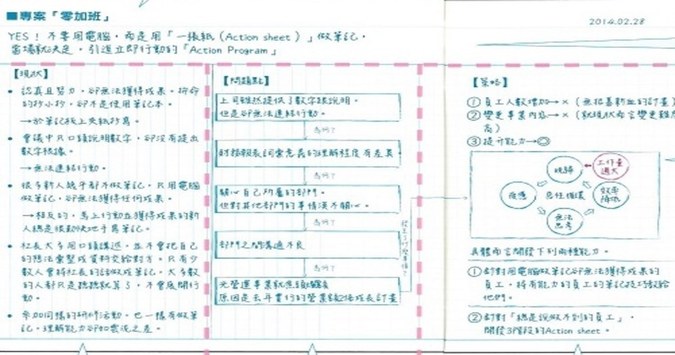 ■專案「零加班」
2014.02.28
YES！不要用電腦，而是用「一張紙（Action sheet）」做筆記，
當場就決定，引進立即行動的「Action Program」
【現狀】
• 認真且努力，卻無法獲得成果。拚命
的抄小抄，卻不是使用筆記本。
→於筆記後上來執行為。
• 會議中只口頭說明數字，卻沒有提出
數字根據。
→無法連結行動。
• 很多新人幾乎都不做筆記，只用電腦
做筆記，卻無法獲得任何成果。
→相反的，馬上行動並獲得成果的新
人總是很勤快地手寫筆記。
• 社長大多用口頭講述，並不會把自己
的想法彙整成資料交給對方。只有少
數人會將社長的話做成筆記，大多數
的人都只是聽聽就算了，不會展開行
動。
• 參加同樣的研習活動，也一樣有做筆
記，理解能力卻如雲泥之差。
【問題點】
上司雖然提供了數字跟說明，
但是卻無法連結行動。
為何？
財務報表詞彙意義的理解程度有差異
為何？
關心自己所屬的部門，
但對其他部門的事情漠不關心。
為何？
部門之間溝通不良
為何？
光營運事業就應接不暇
原因是去年實行的營業範圍成長計畫
【策略】
① 員工人數增加→×（無招募新血的計畫）
② 變更事業內容→×（就現狀而言變更難度
高）
③ 提升能力→◎
疲勞
工作量
過大
疲憊
惡性循環
效率
降低
無法
思考
具體而言開發下列兩種能力。
① 針對用電腦做筆記卻無法獲得成果的
員工，將有能力的員工的筆記技巧教給
他們。
② 針對「總是說做不到的員工」，
開發3階段的Action sheet。